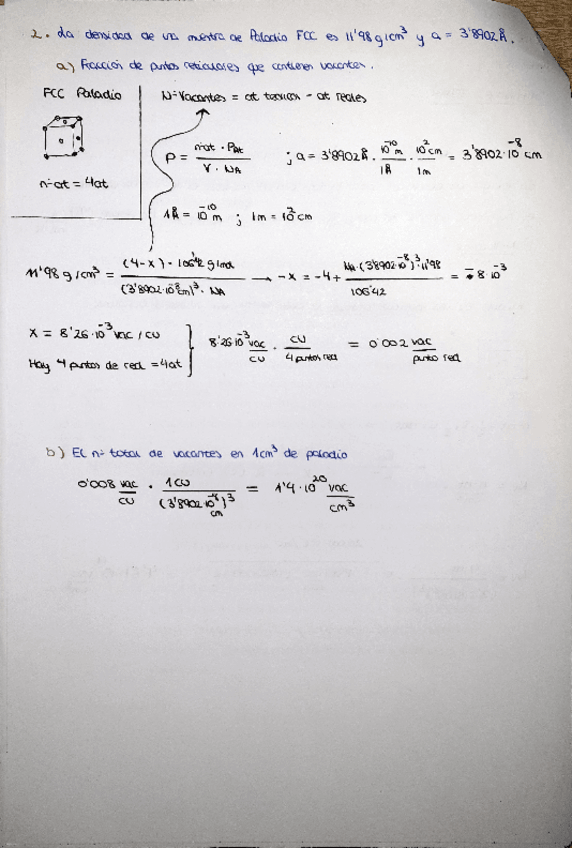 2. La densidad de una muestra de Paladio FCC es 11'98 g/cm³ y a = 3'8902 Å.
a) Fracción de puntos reticulares que contienen vacantes.
FCC Paladio
Nº Vacantes = at teoricos - at reales
ρ = nºat · Pat / V · NA ; a = 3'8902 Å · 10⁻¹⁰ m / 1Å · 10² cm / 1m = 3'8902·10⁻⁸ cm
nº at = 4at
1Å = 10⁻¹⁰ m ; 1m = 10² cm
11'98 g/cm³ = (4-x) · 106'42 g/mol / (3'8902·10⁻⁸ cm)³ · NA → -x = -4 + NA·(3'8902·10⁻⁸)³·11'98 / 106'42 = -8·10⁻³
x = 8'26·10⁻³ vac / cu
Hay 4 puntos de red = 4at
8'26·10⁻³ vac / cu · cu / 4 puntos red = 0'002 vac / punto red
b) El nº total de vacantes en 1cm³ de paladio
0'008 vac / cu · 1cu / (3'8902·10⁻⁸)³ cm = 1'4·10²⁰ vac / cm³